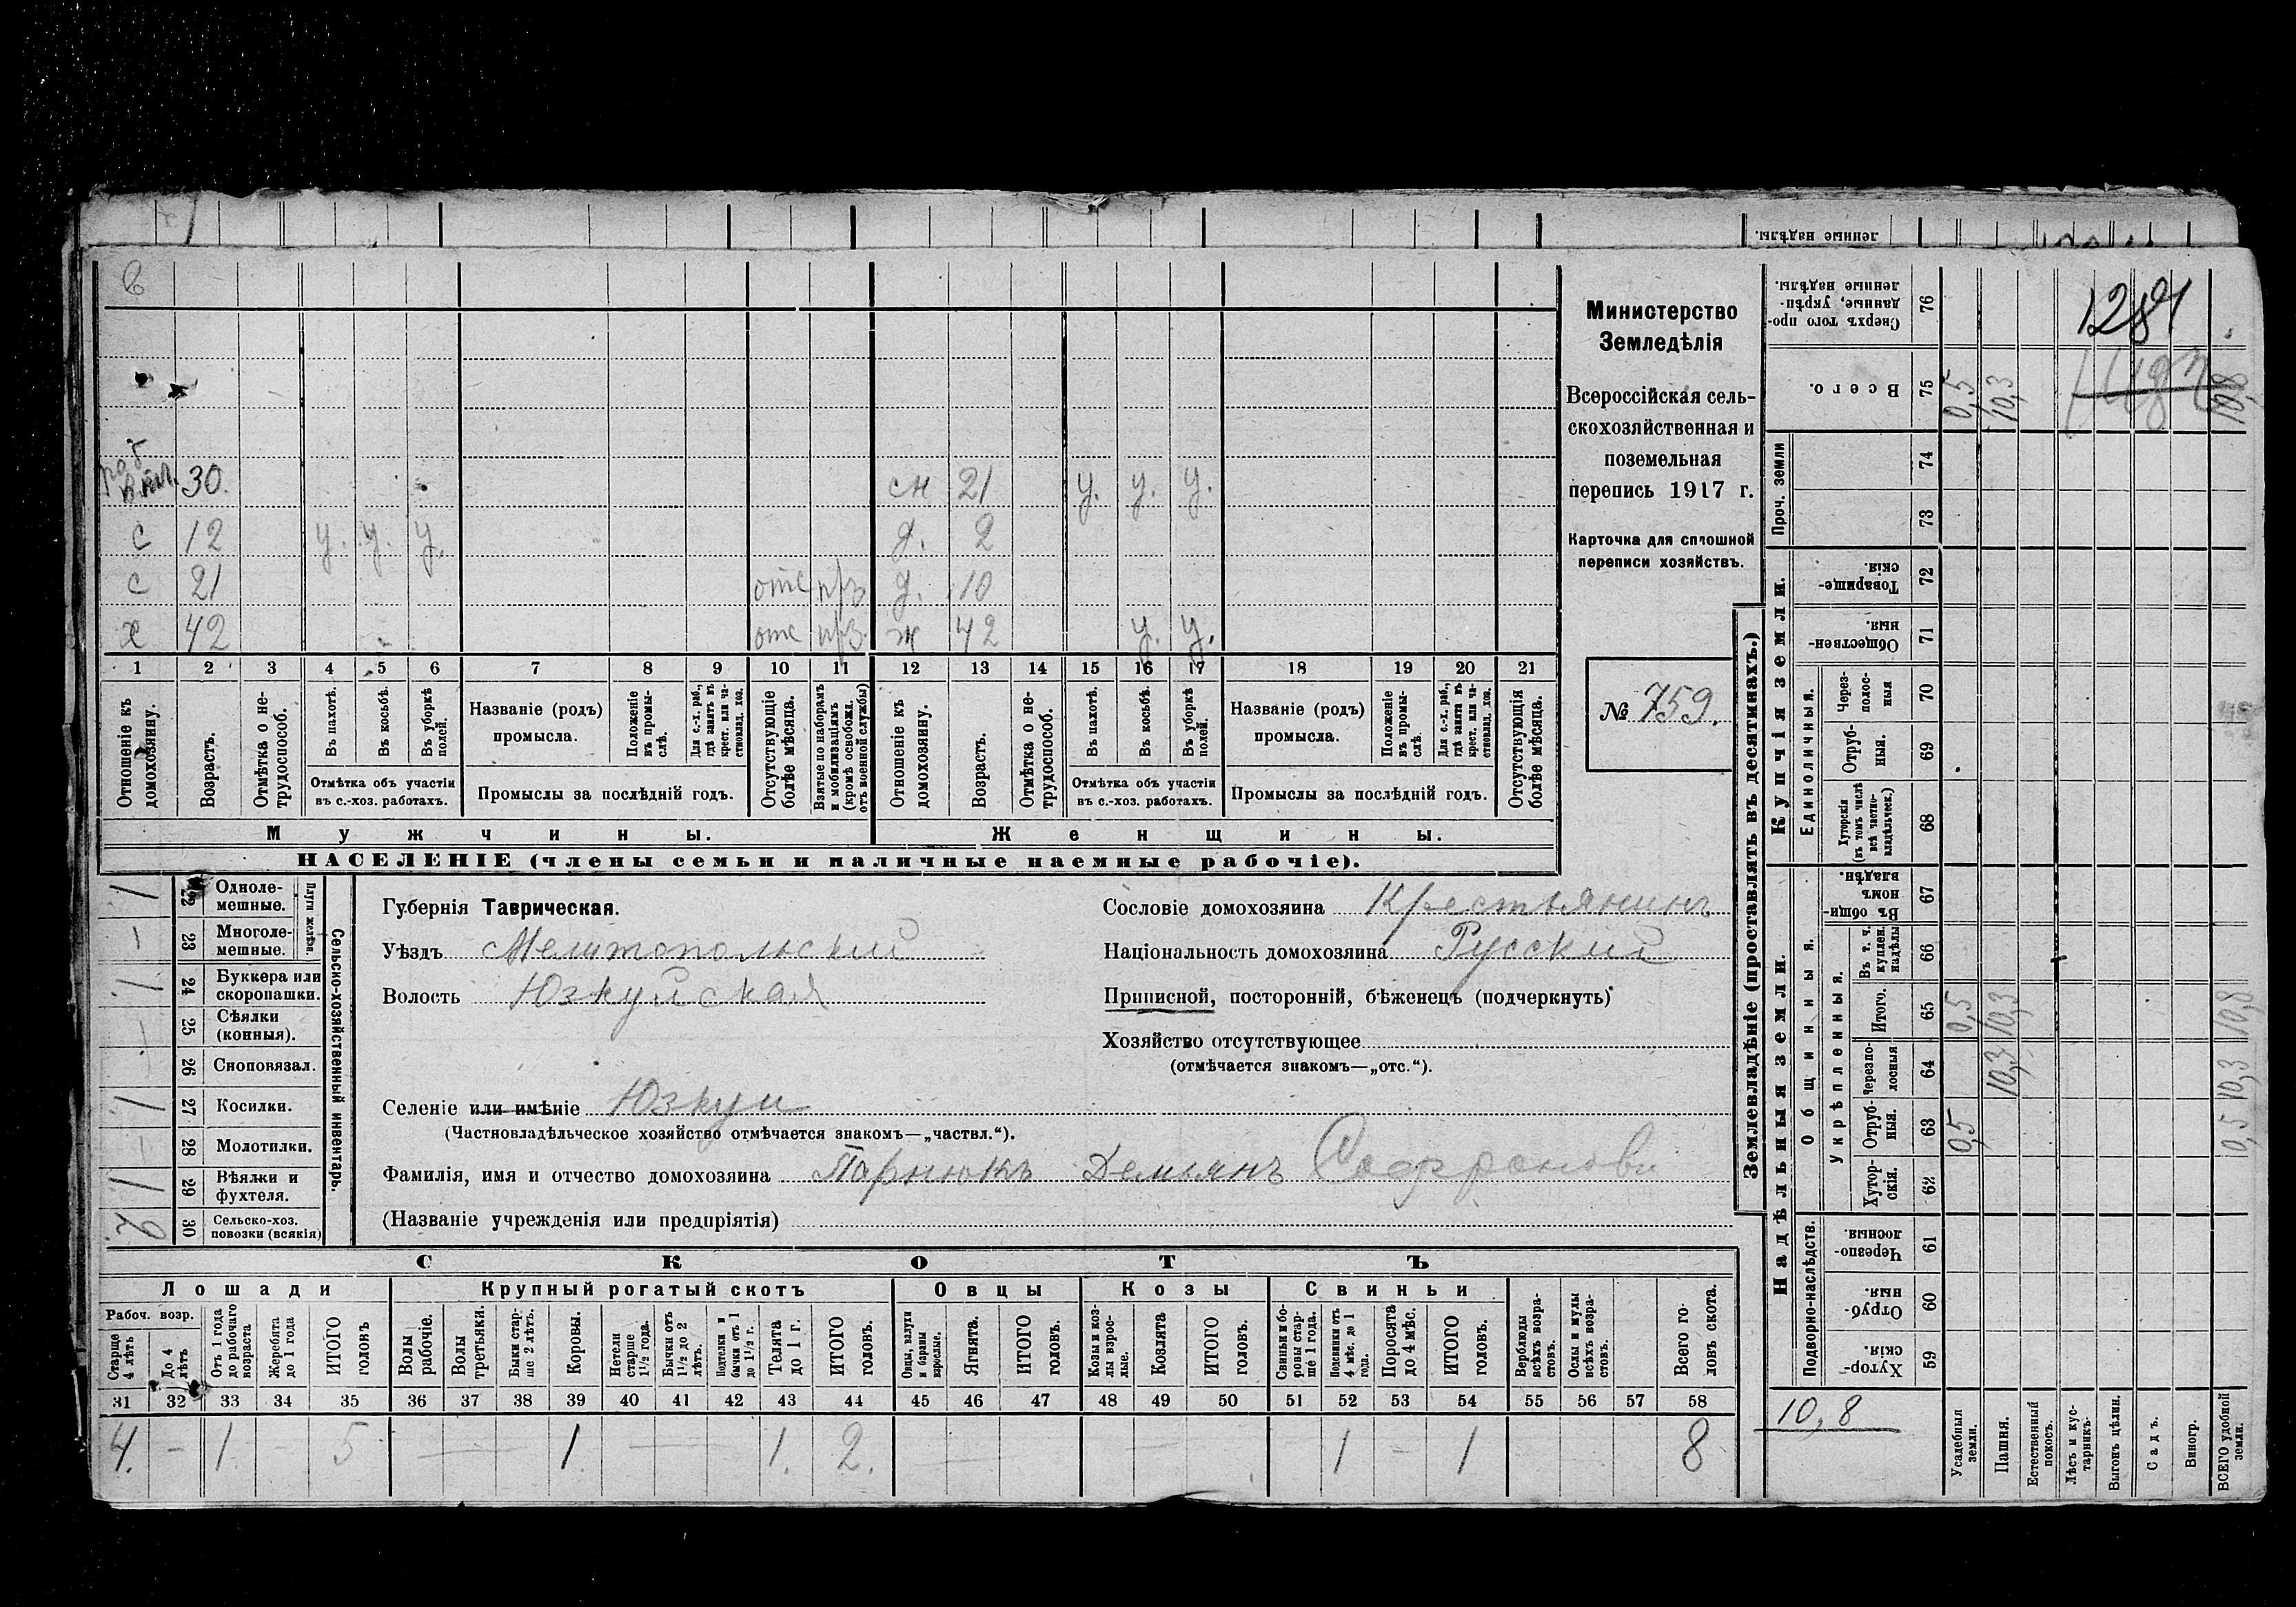 ленные надѣлы.
раб
в.пл. 30. сн 21 у. у. у.
с 12 у. у. у. д. 2
с 21 отс д. 10
х 42 отс ж 42 у. у.
1 2 3 4 5 6 7 8 9 10 11 12 13 14 15 16 17 18 19 20 21
Отношеніе къ домохозяину.
Возрастъ.
Отмѣтка о нетрудоспособ.
Въ пахотѣ.
Въ косьбѣ.
Въ уборкѣ полей.
Отмѣтка объ участіи
въ с.-хоз. работахъ.
Названіе (родъ)
промысла.
Положеніе въ промыслѣ.
Для с.-х. раб., гдѣ занятъ въ крест. или частновлад. хоз.
Промыслы за послѣдній годъ.
Отсутствующіе болѣе мѣсяца.
Взятые по наборамъ и мобилизаціямъ (кромѣ освобожд. отъ военной службы)
Отношеніе къ домохозяину.
Возрастъ.
Отмѣтка о нетрудоспособ.
Въ пахотѣ.
Въ косьбѣ.
Въ уборкѣ полей.
Отмѣтка объ участіи
въ с.-хоз. работахъ.
Названіе (родъ)
промысла.
Положеніе въ промыслѣ.
Для с.-х. раб., гдѣ занята въ крест. или частновлад. хоз.
Промыслы за послѣдній годъ.
Отсутствующія болѣе мѣсяца.
Мужчины. Женщины.
НАСЕЛЕНІЕ (члены семьи и наличные наемные рабочіе).
Министерство
Земледѣлія
Всероссійская сель-
скохозяйственная и
поземельная
перепись 1917 г.
Карточка для сплошной
переписи хозяйствъ.
№ 759.
Сельско-хозяйственный инвентарь.
Плуги желѣзн.
1 22 Однолемешные.
– 23 Многолемешные.
1 24 Буккера или скоропашки.
– 25 Сѣялки (конныя).
26 Сноповязал.
1 27 Косилки.
– 28 Молотилки.
1 29 Вѣялки и фухтеля.
2 30 Сельско-хоз. повозки (всякія)
Губернія Таврическая.
Уѣздъ Мелитопольский
Волость Юзкуйская
Селеніе или имѣніе Юзкуи
(Частновладѣльческое хозяйство отмѣчается знакомъ—„частвл.“).
Фамилія, имя и отчество домохозяина Парнюкъ Демьянъ Софронови
(Названіе учрежденія или предпріятія)
Сословіе домохозяина Крестьянинъ
Національность домохозяина Русский
Приписной, посторонній, бѣженецъ (подчеркнуть)
Хозяйство отсутствующее
(отмѣчается знакомъ—„отс.“).
СКОТЪ
Лошади Крупный рогатый скотъ Овцы Козы Свиньи
Рабоч. возр.
Старше 4 лѣтъ
До 4 лѣтъ
Отъ 1 года до рабочаго возраста
Жеребята до 1 года
ИТОГО головъ
Волы рабочіе.
Волы третьяки.
Быки старше 2 лѣтъ.
Коровы.
Нетели старше 1½ года.
Бычки отъ 1½ до 2 лѣтъ.
Подтелки и бычки отъ 1 до 1½ г.
Телята до 1 г.
ИТОГО головъ.
Овцы, валухи и бараны взрослые.
Ягнята.
ИТОГО головъ.
Козы и козлы взрослые.
Козлята
ИТОГО головъ.
Свиньи и боровы старше 1 года.
Подсвинки отъ 4 мѣс. до 1 года.
Поросята до 4 мѣс.
ИТОГО головъ.
Верблюды всѣхъ возрастовъ.
Ослы и мулы всѣхъ возрастовъ.
Всего головъ скота.
31 32 33 34 35 36 37 38 39 40 41 42 43 44 45 46 47 48 49 50 51 52 53 54 55 56 57 58
4. – 1. – 5 – 1. – 1. 2. – – – 1 – 1 – 8
Землевладѣніе (проставлять въ десятинахъ.)
Купчія земли.
Надѣльныя земли.
Сверхъ того проданные, укрѣпленные надѣлы. 76
Всего. 75 0,5 10,3 10,8
1281
Проч. земли 74
73
Товарищескія. 72
Общественныя. 71
Единоличныя.
Черезполосныя 70
Отрубныя. 69
Хуторскія (въ томъ числѣ всѣ частновладѣльческ.) 68
Общинныя.
Въ общинномъ владѣн. 67
Укрѣпленныя.
Въ т. ч. куплен. надѣлы 66
Итого. 65 0,5 10,3 10,8
Черезполосныя 64 10,3 10,3
Отрубныя. 63 0,5 0,5
Хуторскія. 62
Подворно-наслѣдств.
Черезполосныя. 61
Отрубныя. 60
Хуторскія. 59
10,8
Усадебныя земли.
Пашня.
Естественный покосъ.
Лѣсъ и кустарникъ.
Выгонъ цѣлин.
Садъ.
Виногр.
ВСЕГО удобной земли.